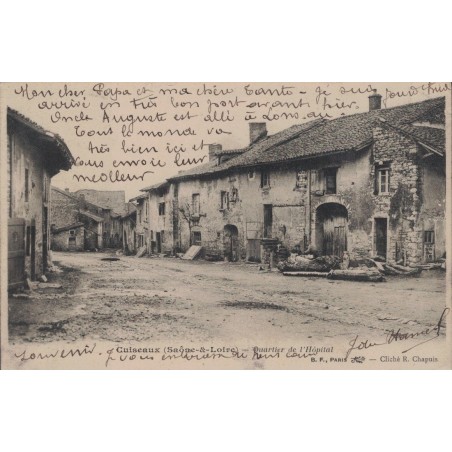 Mon cher Papa et ma chère Tante - je suis
arrivé en très bon port avant hier.
Oncle Auguste est allé à Lons au jourd'hui
Tout le monde va
très bien ici et
vous envoie leur
meilleur
souvenir.
Je vous embrasse de tout cœur
Cuiseaux (Saône-&-Loire) — Quartier de l'Hôpital
B. F., PARIS
Cliché R. Chapuis